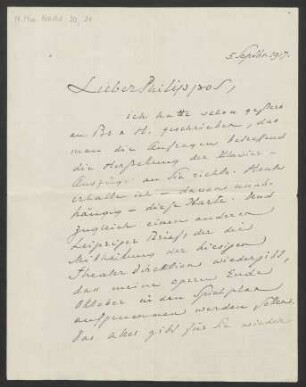 5 Septbr 1917.
Lieber Philippos,
ich hatte schon gestern
an B u H. geschrieben, dass
man die Anfragen betreffend
die Herstellung der Klavier-
Auszüge an Sie richte. Heute
erhalte ich – davon unab-
hängig – diese Karte. Und
zugleich einen anderen
Leipziger Brief, der die
Mittheilung der hiesigen
Theaterdirektion wiedergibt,
dass meine Opern Ende
Oktober in den Spielplan
aufgenommen werden sollen.
Das alles gibt für Sie wieder